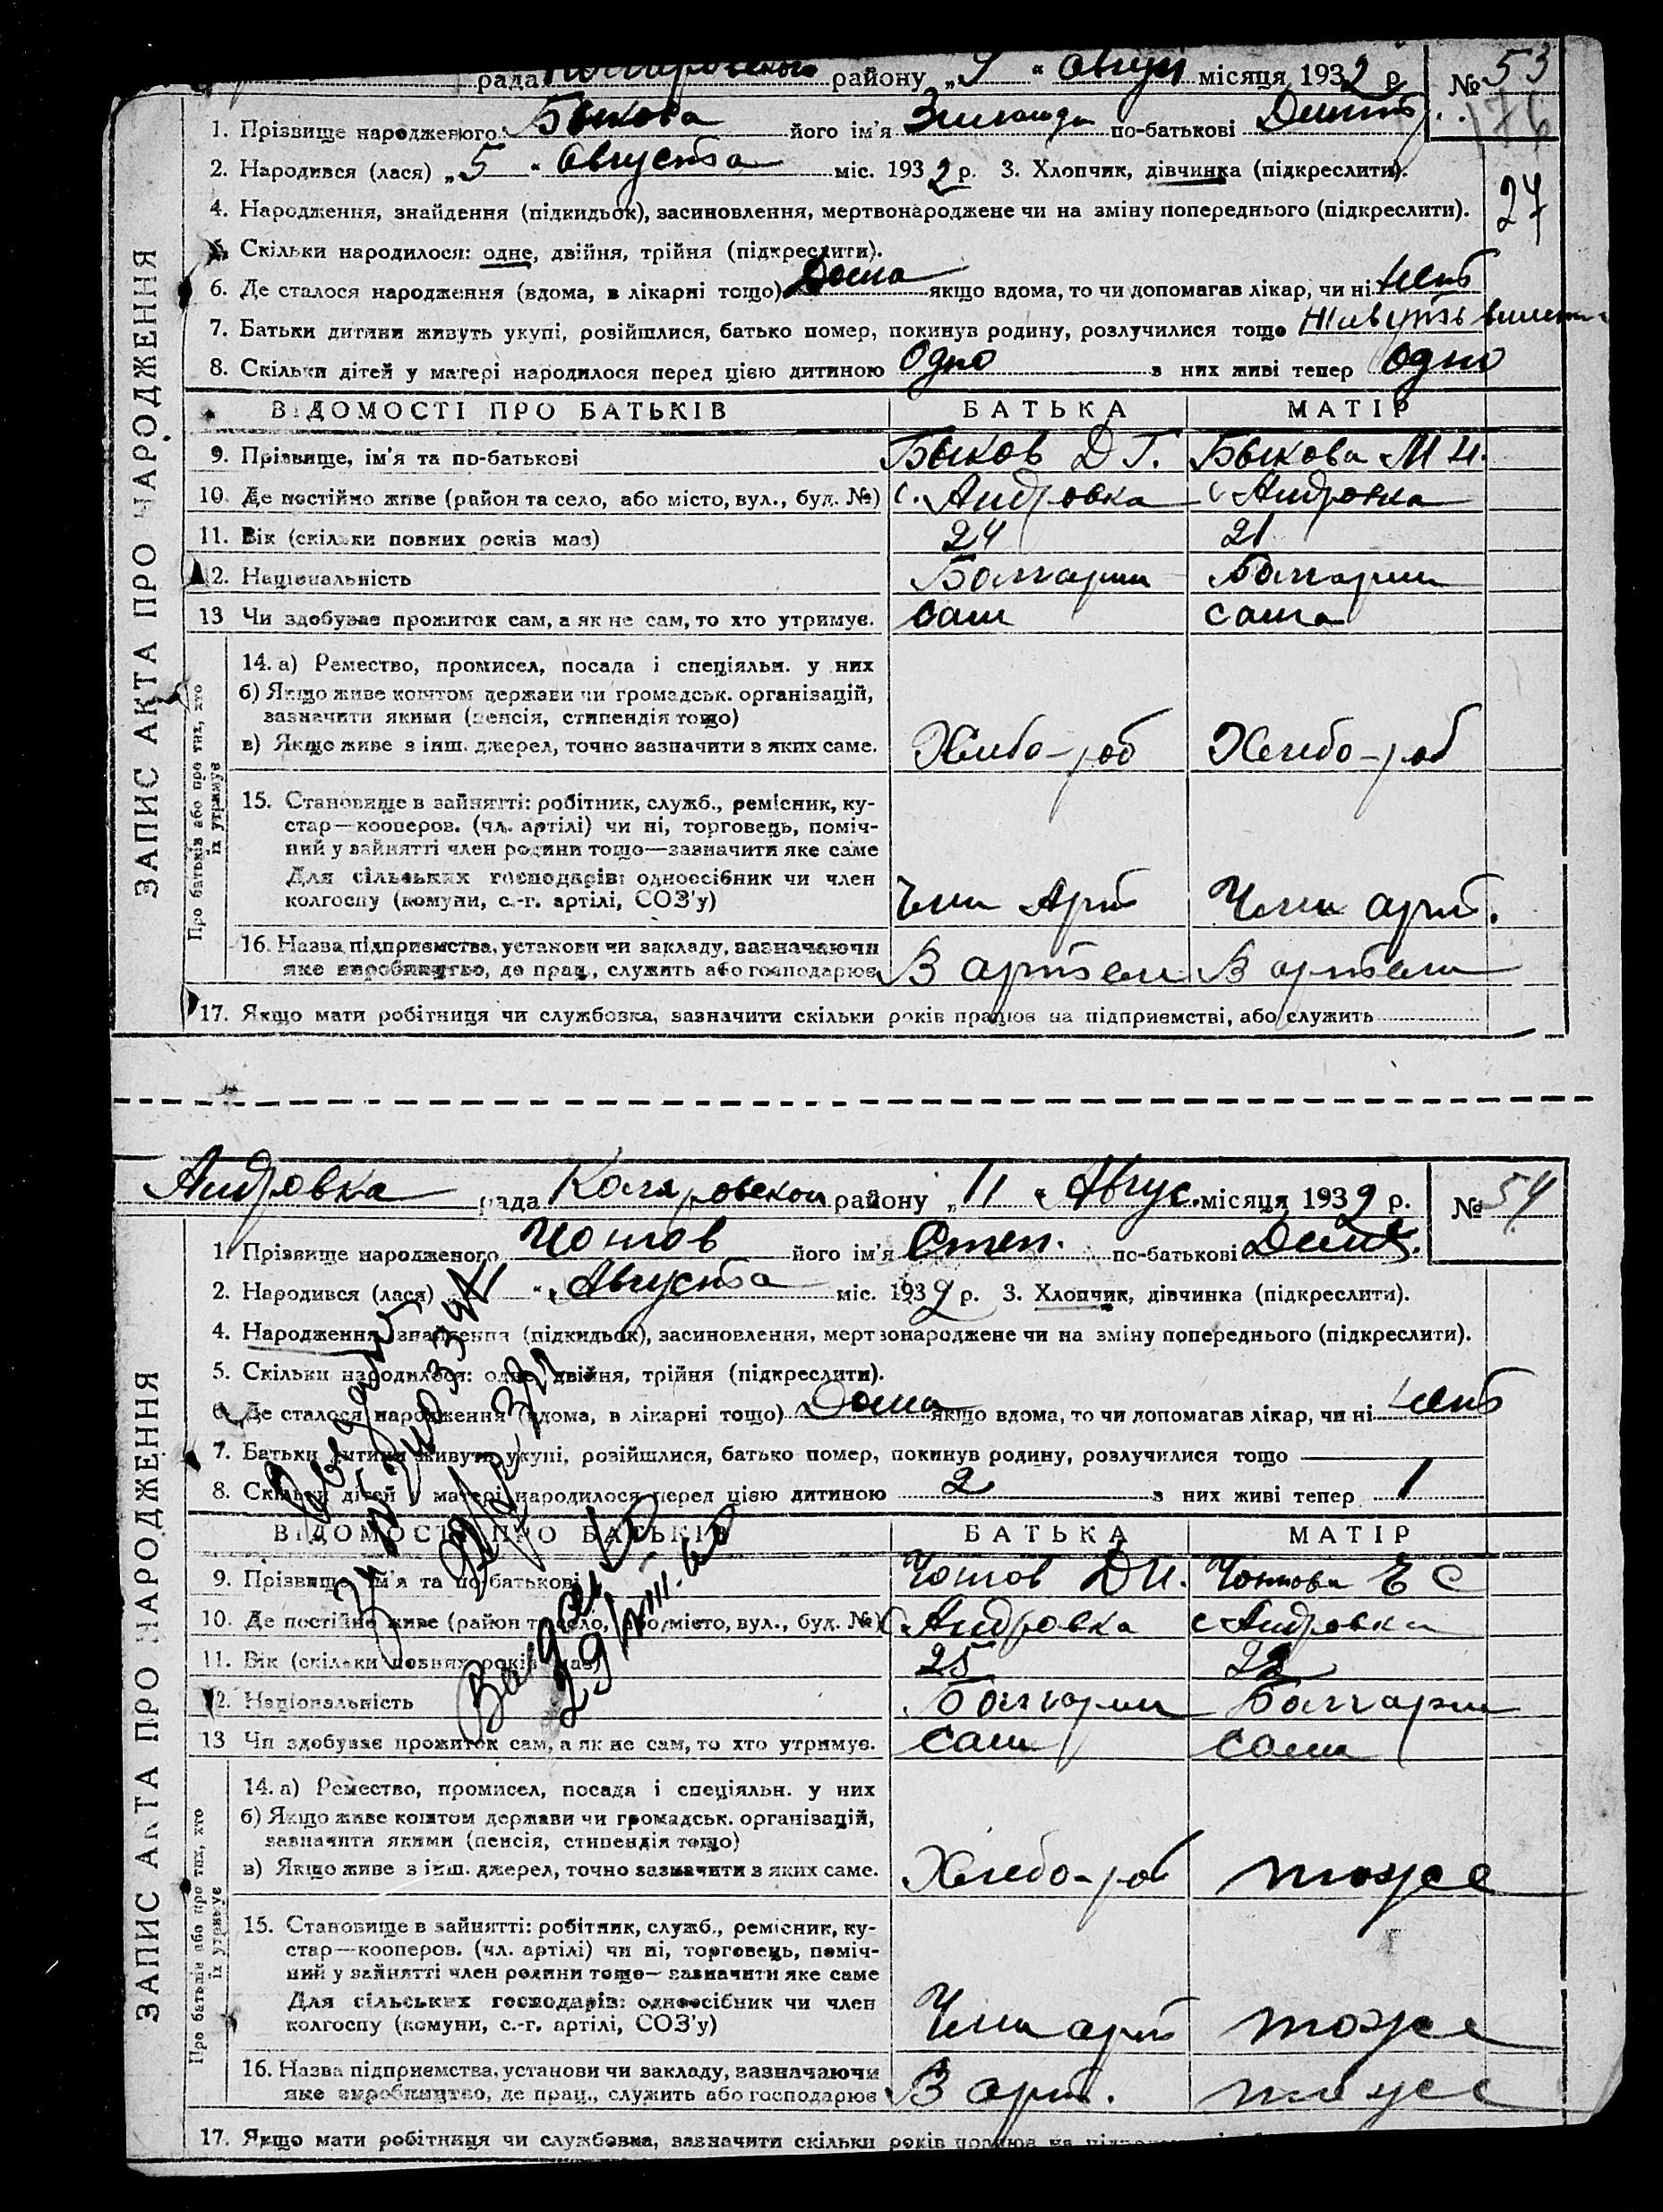 рада Коларовського району „9 “ Август місяця 1932 р. № 53
176
1. Прізвище народженого Быкова його ім'я по-батькові Дмитр.
2. Народився (лася) „5 “ Августа міс. 1932 р. 3. Хлопчик, дівчинка (підкреслити).
27
4. Народження, знайдення (підкидьок), засиновлення, мертвонароджене чи на зміну попереднього (підкреслити).
5. Скільки народилося: одне, двійня, трійня (підкреслити).
6. Де сталося народження (вдома, в лікарні тощо) Дома якщо вдома, то чи допомагав лікар, чи ні нет
7. Батьки дитини живуть укупі, розійшлися, батько помер, покинув родину, розлучилися тощо Живуть
8. Скільки дітей у матері народилося перед цією дитиною Одно з них живі тепер Одно
ВІДОМОСТІ ПРО БАТЬКІВ БАТЬКА МАТІР
9. Прізвище, ім'я та по-батькові Быков Д Г. Быкова М И.
10. Де постійно живе (район та село, або місто, вул., буд. №) с. Андровка с Андровка
11. Вік (скільки повних років має) 24 21
12. Національність Болгарин Болгарин
13 Чи здобуває прожиток сам, а як не сам, то хто утримує. Сам Сама
14. а) Ремество, промисел, посада і спеціяльн. у них
б) Якщо живе коштом держави чи громадськ. організацій,
зазначити якими (пенсія, стипендія тощо)
в) Якщо живе з інш. джерел, точно зазначити з яких саме. Хлебо-роб Хлебо-роб
15. Становище в зайнятті: робітник, служб., ремісник, ку-
стар—кооперов. (чл. артілі) чи ні, торговець, поміч-
ний у зайнятті член родини тощо—зазначити яке саме
Для сільських господарів: одноосібник чи член
колгоспу (комуни, с.-г. артілі, СОЗ'у) Член Арт Член арт.
16. Назва підприємства, установи чи закладу, зазначаючи
яке виробництво, де прац., служить або господарює В артели В артели
17. Якщо мати робітниця чи службовка, зазначити скільки років працює на підприємстві, або служить
ЗАПИС АКТА ПРО НАРОДЖЕННЯ
Про батьків або про тих, хто
їх утримує
Андровка рада Коларовской району „11 “ Авгус. місяця 1932 р. № 54
1. Прізвище народженого Чотов його ім'я Степ. по-батькові Дмит.
2. Народився (лася) “ Августа міс. 1932 р. 3. Хлопчик, дівчинка (підкреслити).
4. Народження, знайдення (підкидьок), засиновлення, мертвонароджене чи на зміну попереднього (підкреслити).
5. Скільки народилося: одне, двійня, трійня (підкреслити).
6. Де сталося народження (вдома, в лікарні тощо) Дома якщо вдома, то чи допомагав лікар, чи ні нет
7. Батьки дитини живуть укупі, розійшлися, батько помер, покинув родину, розлучилися тощо
8. Скільки дітей у матері народилося перед цією дитиною 2 з них живі тепер 1
ВІДОМОСТІ ПРО БАТЬКІВ БАТЬКА МАТІР
9. Прізвище, ім'я та по-батькові Чотов Д И. Чотова Е С
10. Де постійно живе (район та село, або місто, вул., буд. №) с Андровка с Андровка
11. Вік (скільки повних років має) 25
12. Національність Болгарин Болгарин
13 Чи здобуває прожиток сам, а як не сам, то хто утримує. Сам Сама
14. а) Ремество, промисел, посада і спеціяльн. у них
б) Якщо живе коштом держави чи громадськ. організацій,
зазначити якими (пенсія, стипендія тощо)
в) Якщо живе з інш. джерел, точно зазначити з яких саме. Хлебо-роб тоже
15. Становище в зайнятті: робітник, служб., ремісник, ку-
стар—кооперов. (чл. артілі) чи ні, торговець, поміч-
ний у зайнятті член родини тощо—зазначити яке саме
Для сільських господарів: одноосібник чи член
колгоспу (комуни, с.-г. артілі, СОЗ'у) Член арт тоже
16. Назва підприємства, установи чи закладу, зазначаючи
яке виробництво, де прац., служить або господарює В арт. тоже
17. Якщо мати робітниця чи службовка, зазначити скільки років працює на
ЗАПИС АКТА ПРО НАРОДЖЕННЯ
Про батьків або про тих, хто
їх утримує